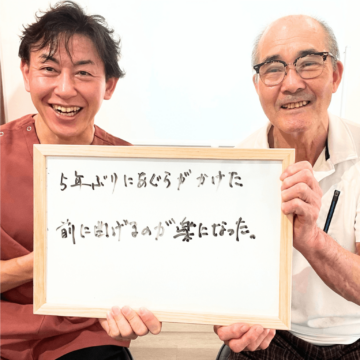 5年ぶりにあぐらがかけた
前に曲げるのが楽になった。